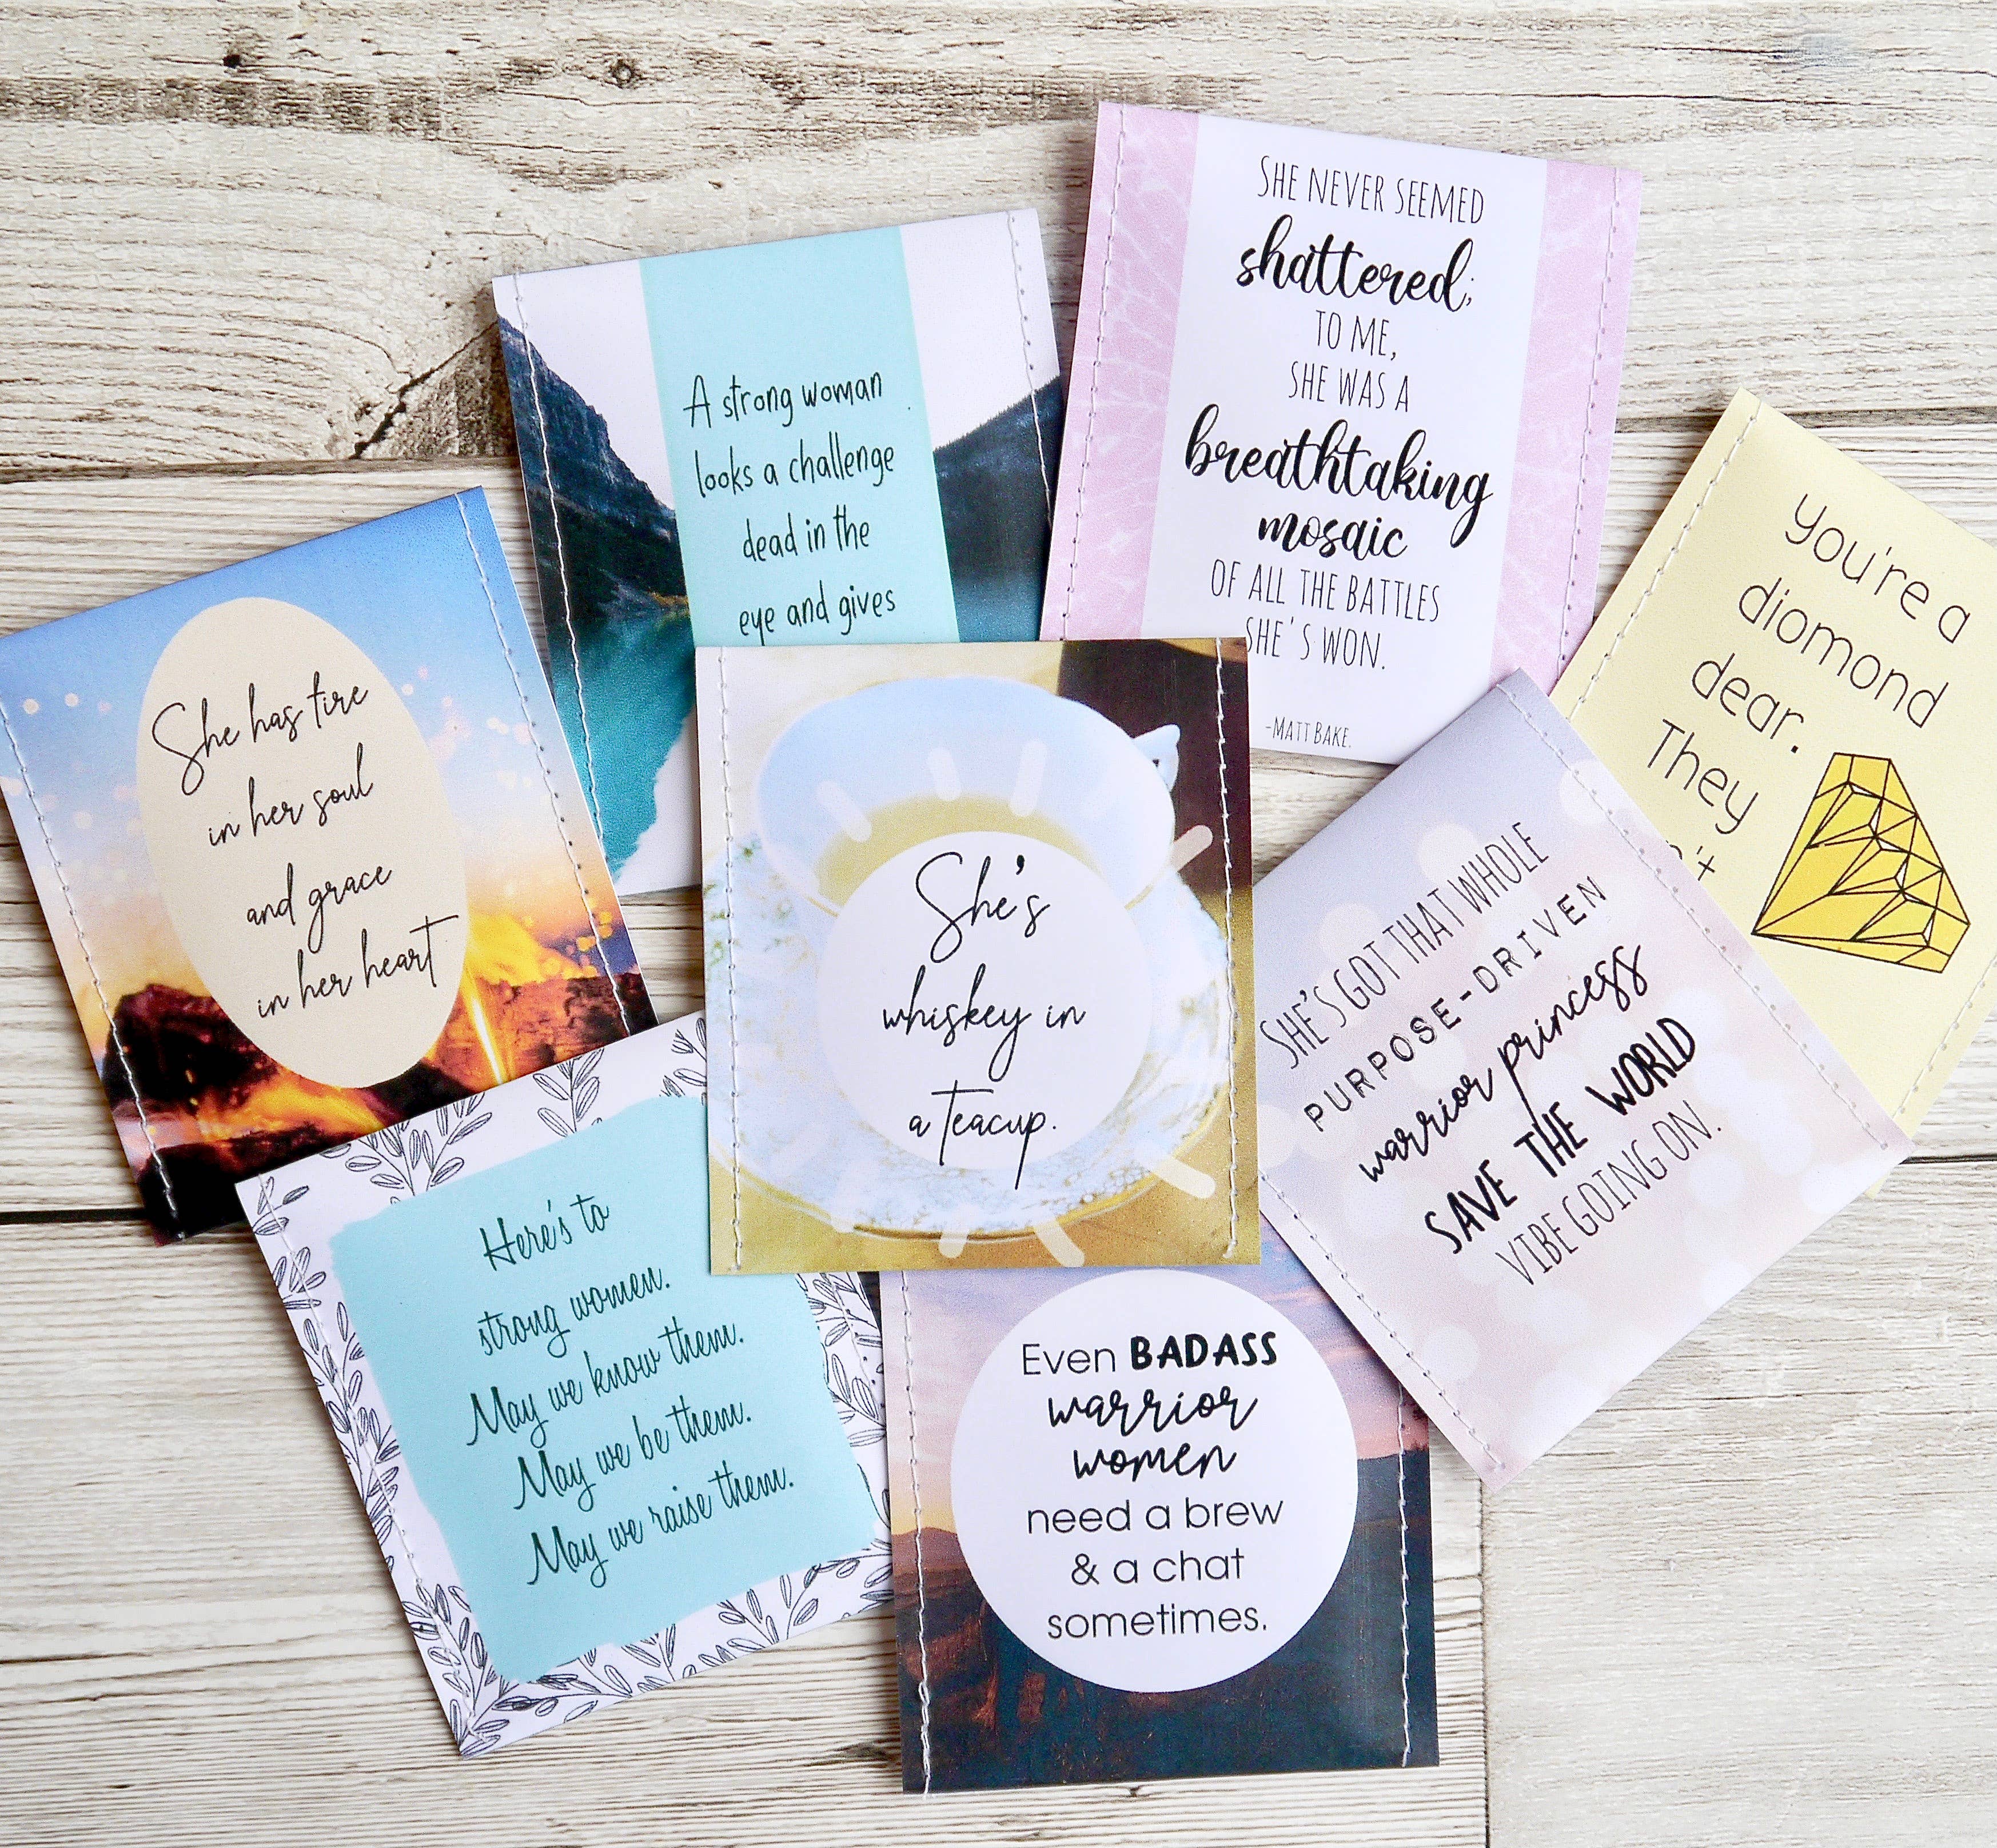 A strong woman
looks a challenge
dead in the
eye and gives
SHE NEVER SEEMED
shattered;
TO ME,
SHE WAS A
breathtaking
mosaic
OF ALL THE BATTLES
SHE'S WON.
-MATT BAKE.
you're a
diomond
dear.
They
't
She has fire
in her soul
and grace
in her heart
She's
whiskey in
a teacup.
SHE'S GOT THAT WHOLE
PURPOSE-DRIVEN
warrior princess
SAVE THE WORLD
VIBE GOING ON.
Here's to
strong women.
May we know them.
May we be them.
May we raise them.
Even BADASS
warrior
women
need a brew
& a chat
sometimes.